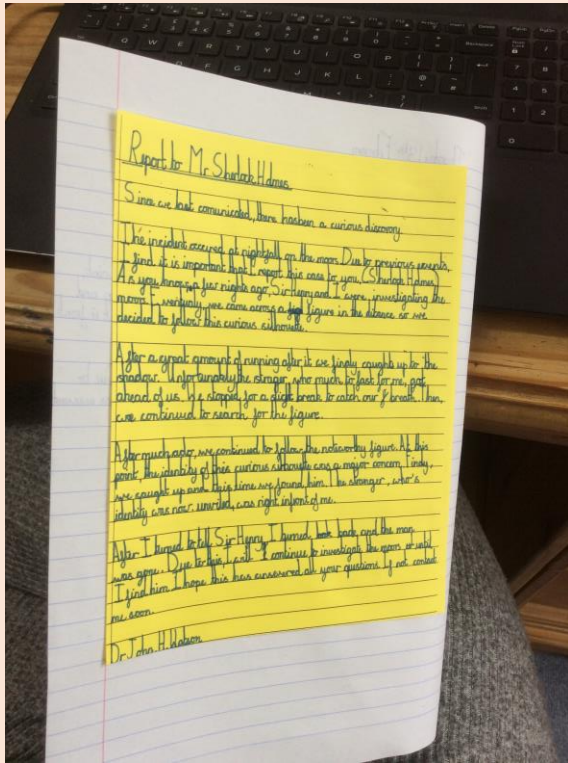 Report to Mr Sherlock Holmes
Since we last comunicated, there has been a curious discovery
The incident occured at nightfall on the moor. Due to previous events,
I find it is important that I report this case to you, (Sherlock Holmes)
As you know, a few nights ago, Sir Henry and I were investigating the
moor. Eventualy we came across a figure in the distance so we
decided to follow this curious silhouette.
After a great amount of running after it we finaly caught up to the
shadow. Unfortunately the stranger, who much to fast for me, got
ahead of us. We stopped for a slight break to catch our breath. Then,
we continued to search for the figure.
After much ado, we continued to follow the noteworthy figure. At this
point, the identity of this curious silhouette was a major concern. Finaly,
we caught up and this time we found him. The stranger, who's
identity was now unveiled, was right infront of me.
After I turned to tell Sir Henry, I turned back and the man
was gone. Due to this, I will continue to investigate the moor until
I find him. I hope this has answered all your questions. If not contact
me soon.
Dr John H. Watson